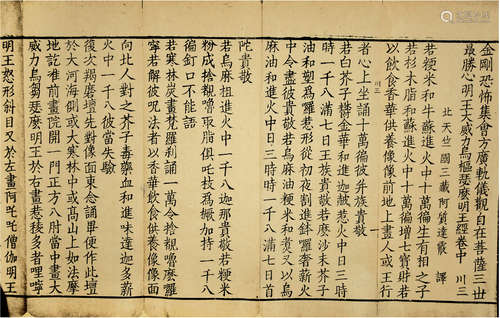 金剛恐怖集會方廣軌儀觀自在菩薩三世
最勝心明王大威力烏樞瑟麼明王經卷中 川三
北天竺國三藏阿質達霰 譯
若粳米和牛酥進火中十萬徧生有相之子
若杉木脂和酥進火中十萬徧增七寶財若
以飲食香華供養像前地上畫人或王行
者心上坐誦十萬徧彼并族貴敬
若白芥子鬱金華和進迦赧惹火中日三時
時一千八滿七日王族貴敬若麼沙末芥子
油和塑為囉惹形從初夜割進鉢囉奢薪火
中令盡彼貴敬若烏麻油粳米和煑又以烏
麻油和進火中日三時時一千八滿七日首
陀貴敬
若烏麻担進火中一千八迦那貴敬若粳米
粉成捨覩嚕取脂俱吒枝為橛加持一千八
徧釘口不能語
若寒林炭畫梵羅剎誦一萬令捨覩嚕麼羅
寧若解彼呪者以香華飲食供養像像面
向北人對之芥子毒藥血和進味達迦多薪
火中一千八彼當失驗
復次羯磨壇先對像面東念誦畢便作此壇
於大河海側或大寒林中或高山上如法摩
地訖唯前畫院開一門正方八肘當中畫大
威力烏芻瑟麼明王於右畫惹稜多者哩寧
明王怒形斜目又於左畫阿吒吒僧伽明王